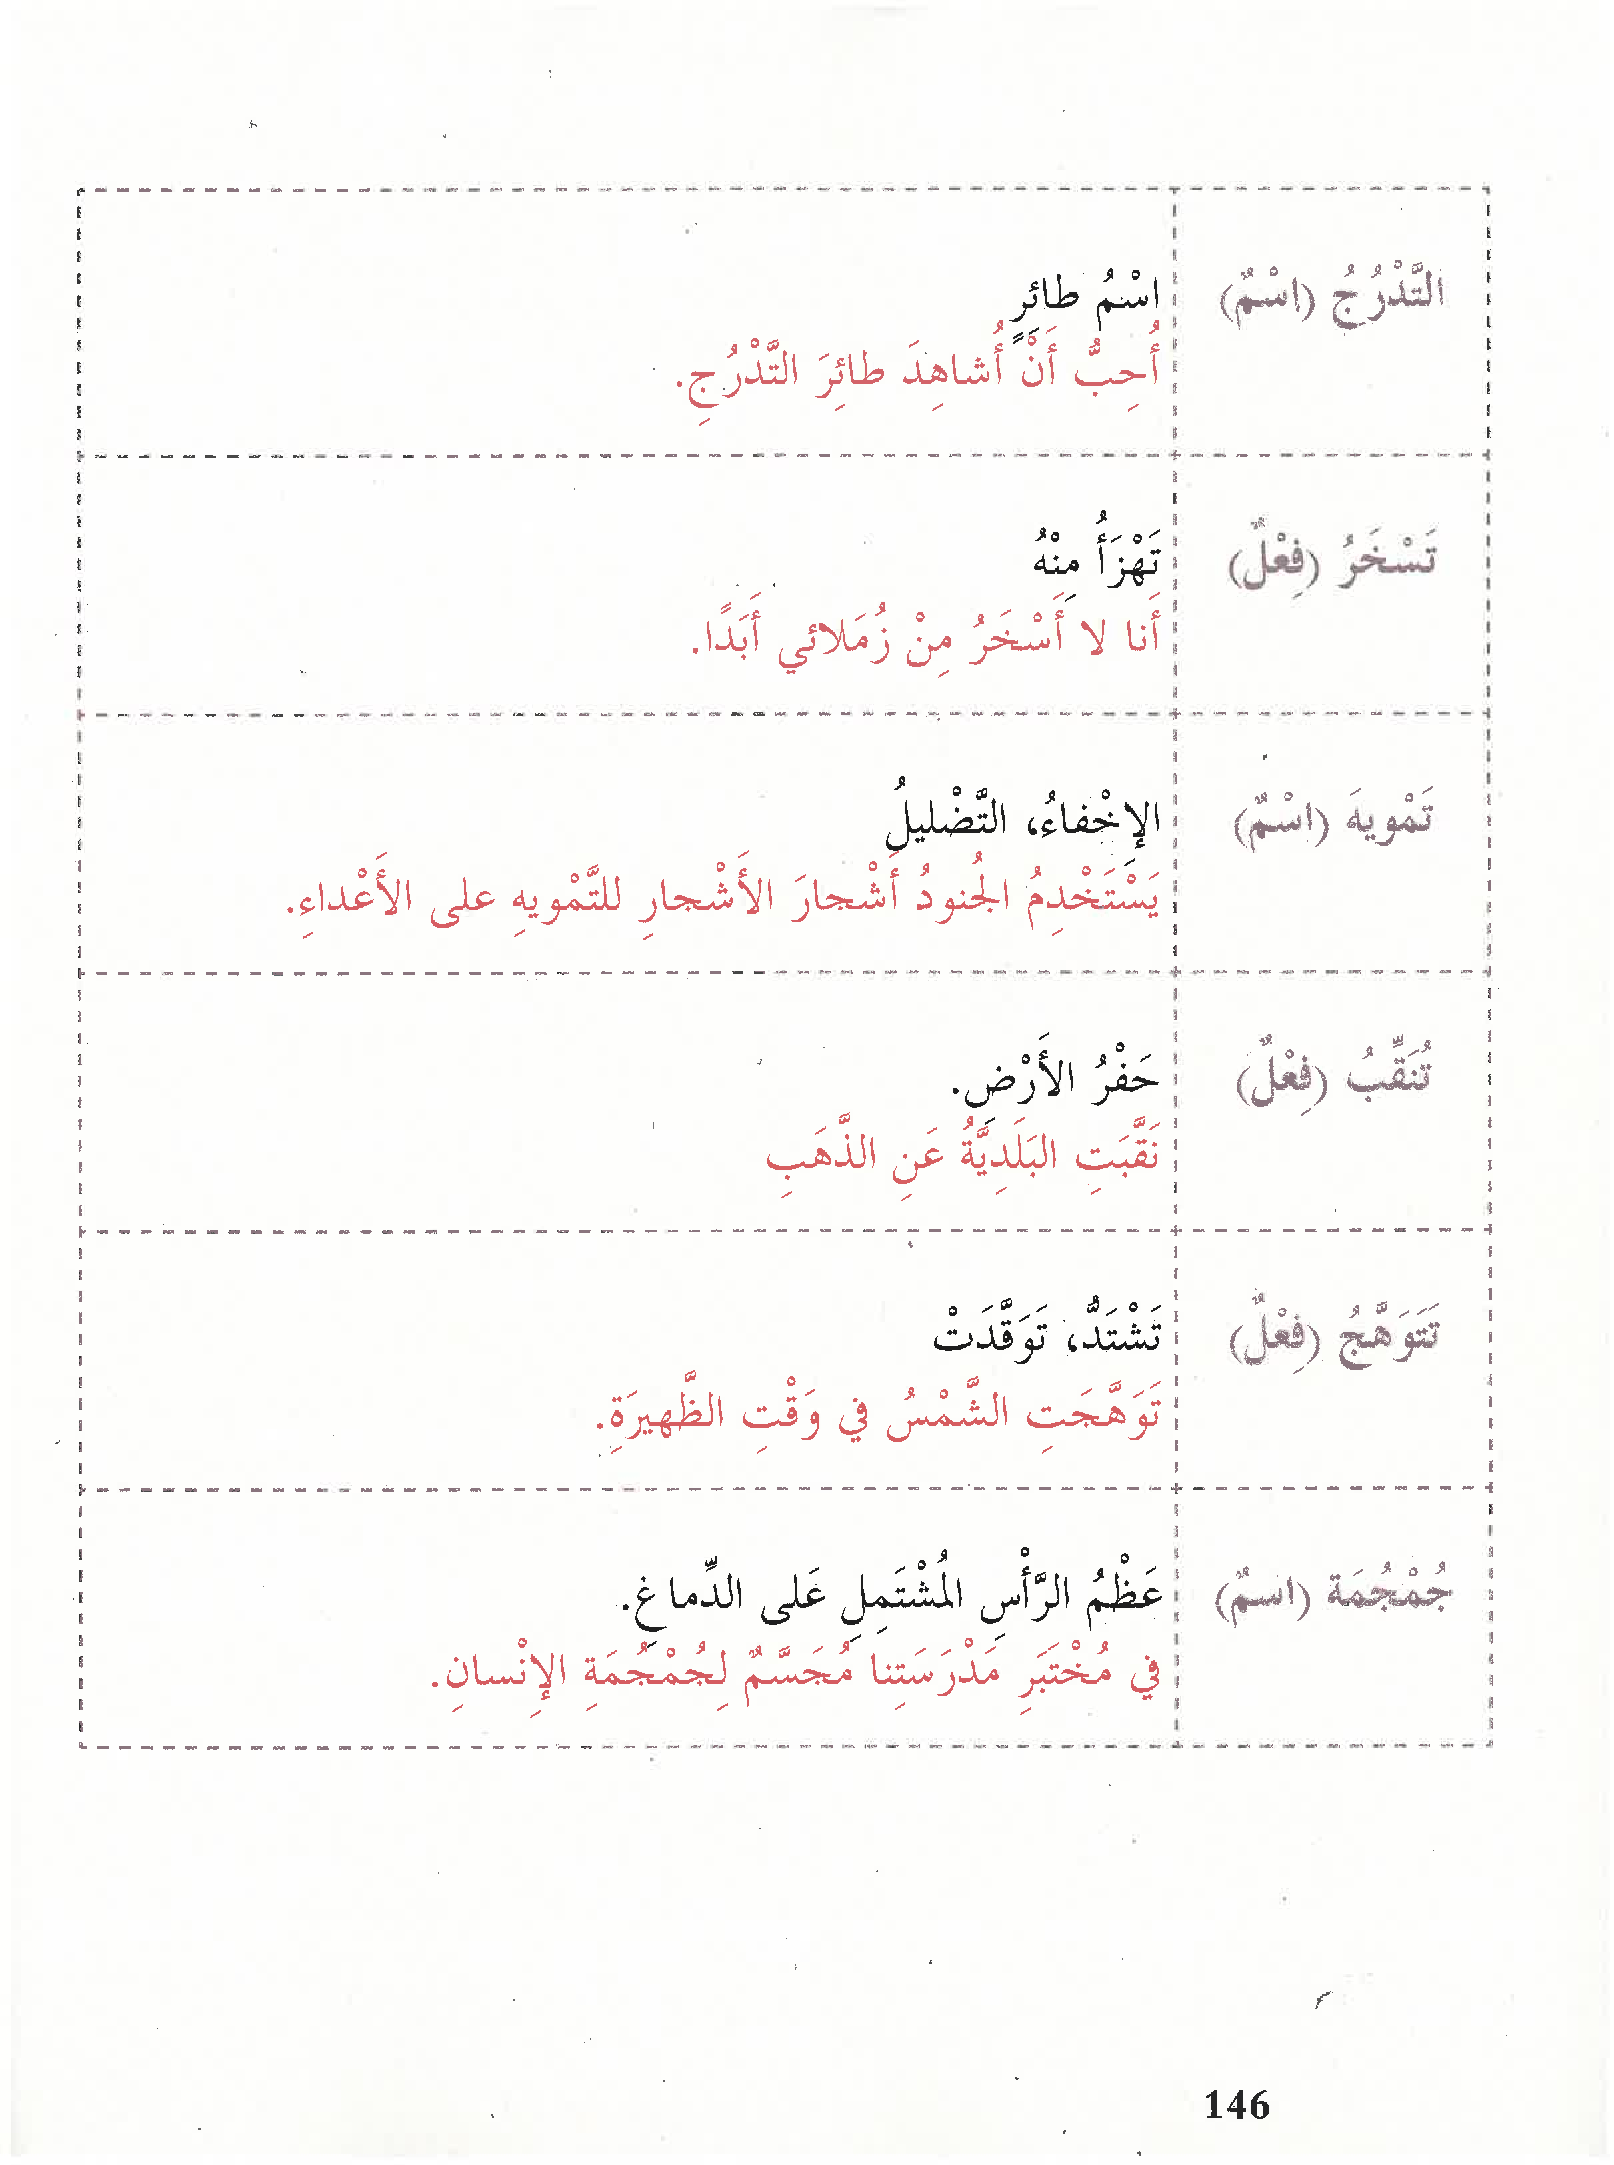 التَّدْرُجُ (اسْمٌ)
اسْمُ طائِرٍ
أُحِبُّ أَنْ أُشاهِدَ طائِرَ التَّدْرُجِ.
تَسْخَرُ (فِعْلٌ)
تَهْزَأُ مِنْهُ
أَنا لا أَسْخَرُ مِنْ زُمَلائي أَبَدًا.
تَمْويهَ (اسْمٌ)
الإخْفاءُ، التَّضْليلُ
يَسْتَخْدِمُ الجُنودُ أَشْجارَ الأَشْجارِ للتَّمْويهِ على الأَعْداءِ.
تُنَقِّبُ (فِعْلٌ)
حَفْرُ الأَرْضِ.
نَقَّبَتِ البَلَدِيَّةُ عَنِ الذَّهَبِ
تَتَوَهَّجُ (فِعْلٌ)
تَشْتَدُّ، تَوَقَّدَتْ
تَوَهَّجَتِ الشَّمْسُ في وَقْتِ الظَّهيرَةِ.
جُمْجُمَة (اسمٌ)
عَظْمُ الرَّأْسِ المُشْتَمِلِ عَلى الدِّماغِ.
في مُخْتَبَرِ مَدْرَسَتِنا مُجَسَّمٌ لِجُمْجُمَةِ الإنْسانِ.
146